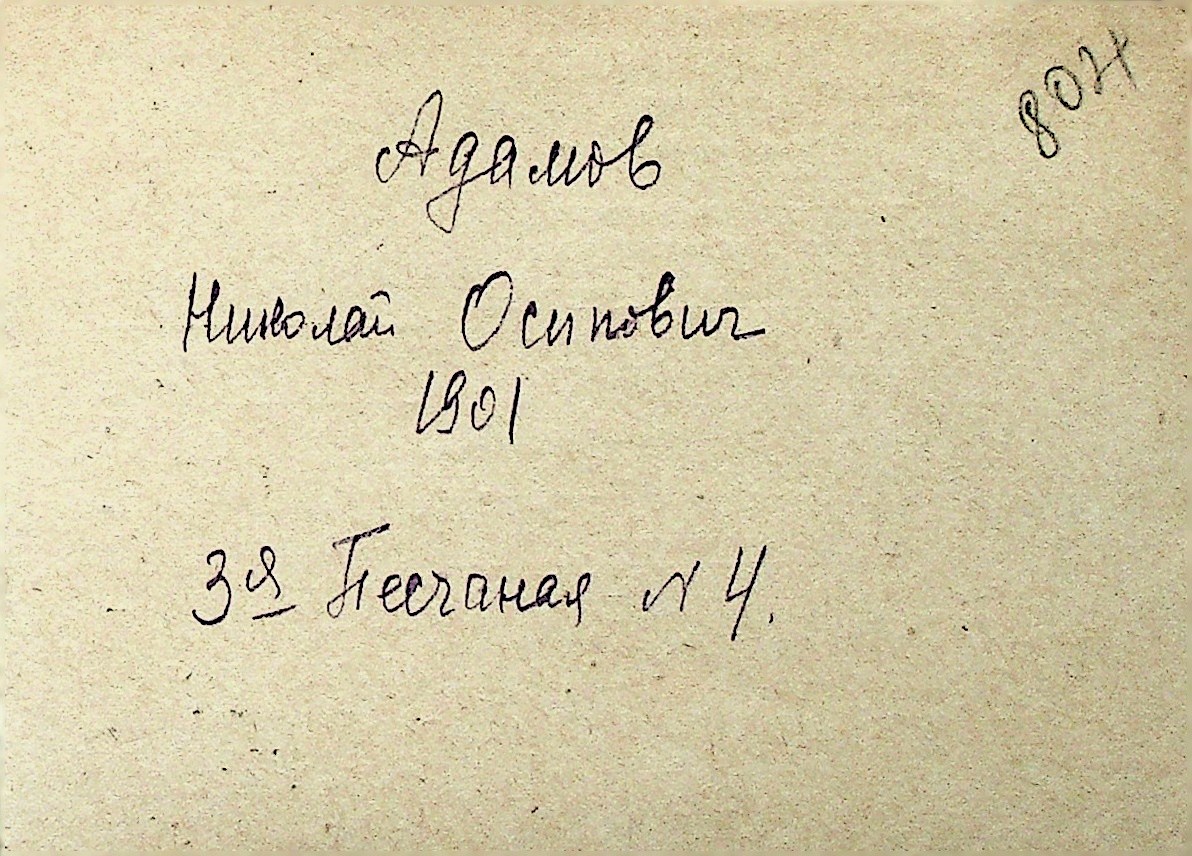 804
Адамов
Николай Осипович
1901
3я Песчаная N 4.